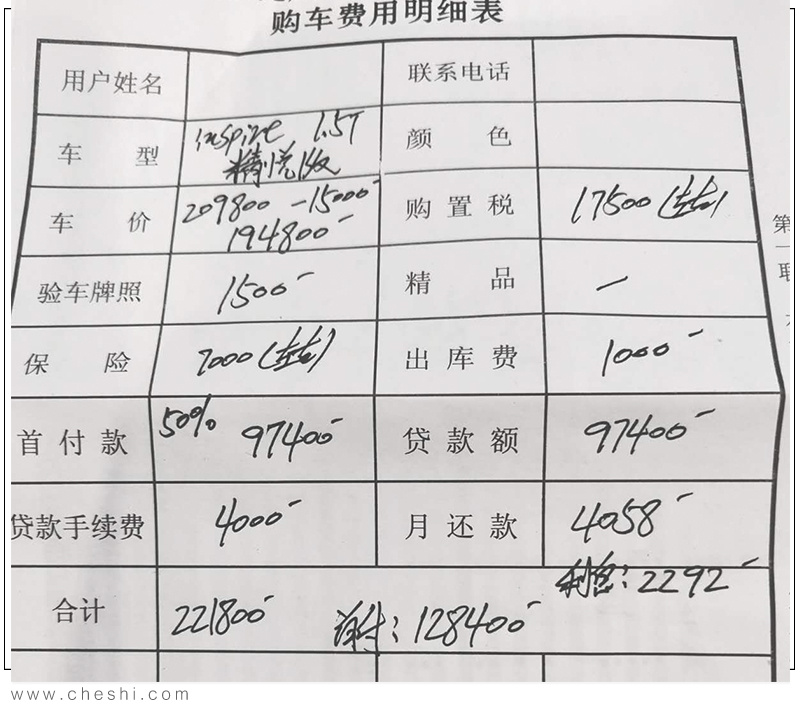 购车费用明细表
用户姓名
联系电话
车型
inspire 1.5T
精锐版
颜色
车价
209800 -15000-
194800-
购置税
17500(左右)
验车牌照
1500-
精品
—
保险
7000(左右)
出库费
1000-
首付款
50% 97400-
贷款额
97400-
贷款手续费
4000-
月还款
4058-
利息:2292-
合计
221800-
首付:128400-
第
一
联
www.cheshi.com